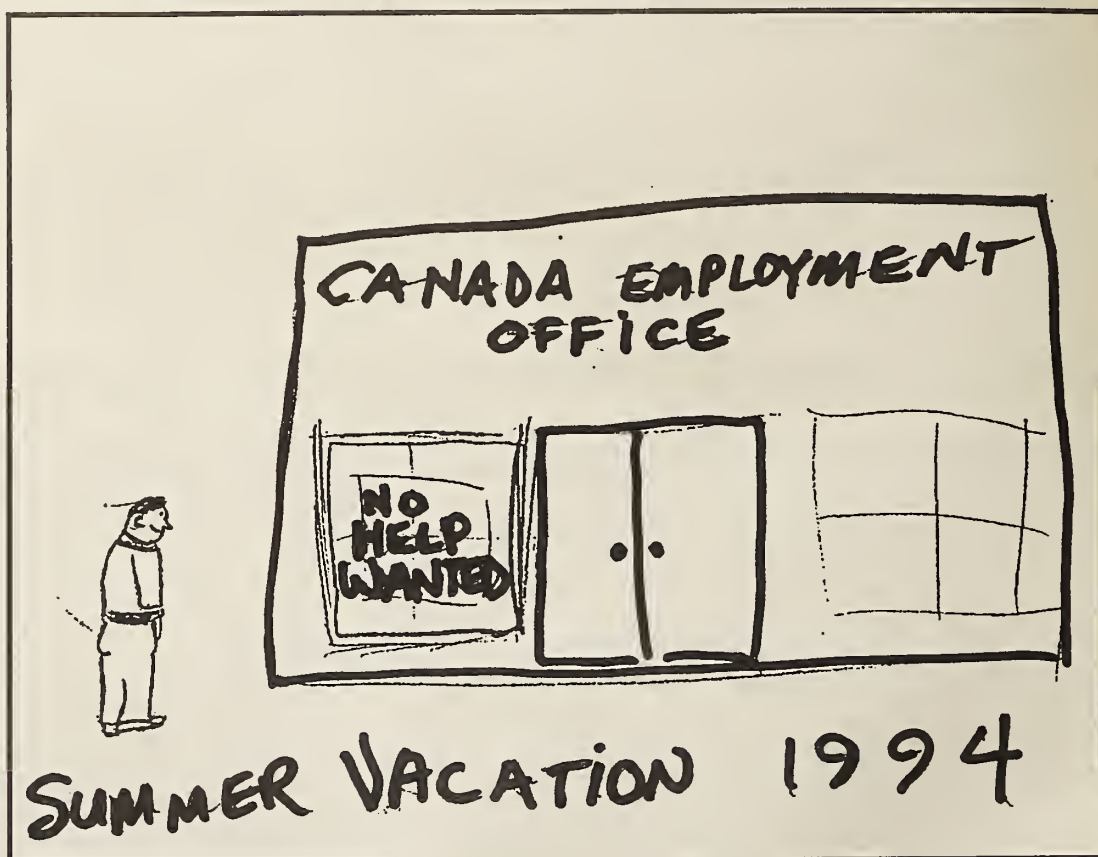 CANADA EMPLOYMENT
OFFICE
NO
HELP
WANTED
SUMMER VACATION 1994